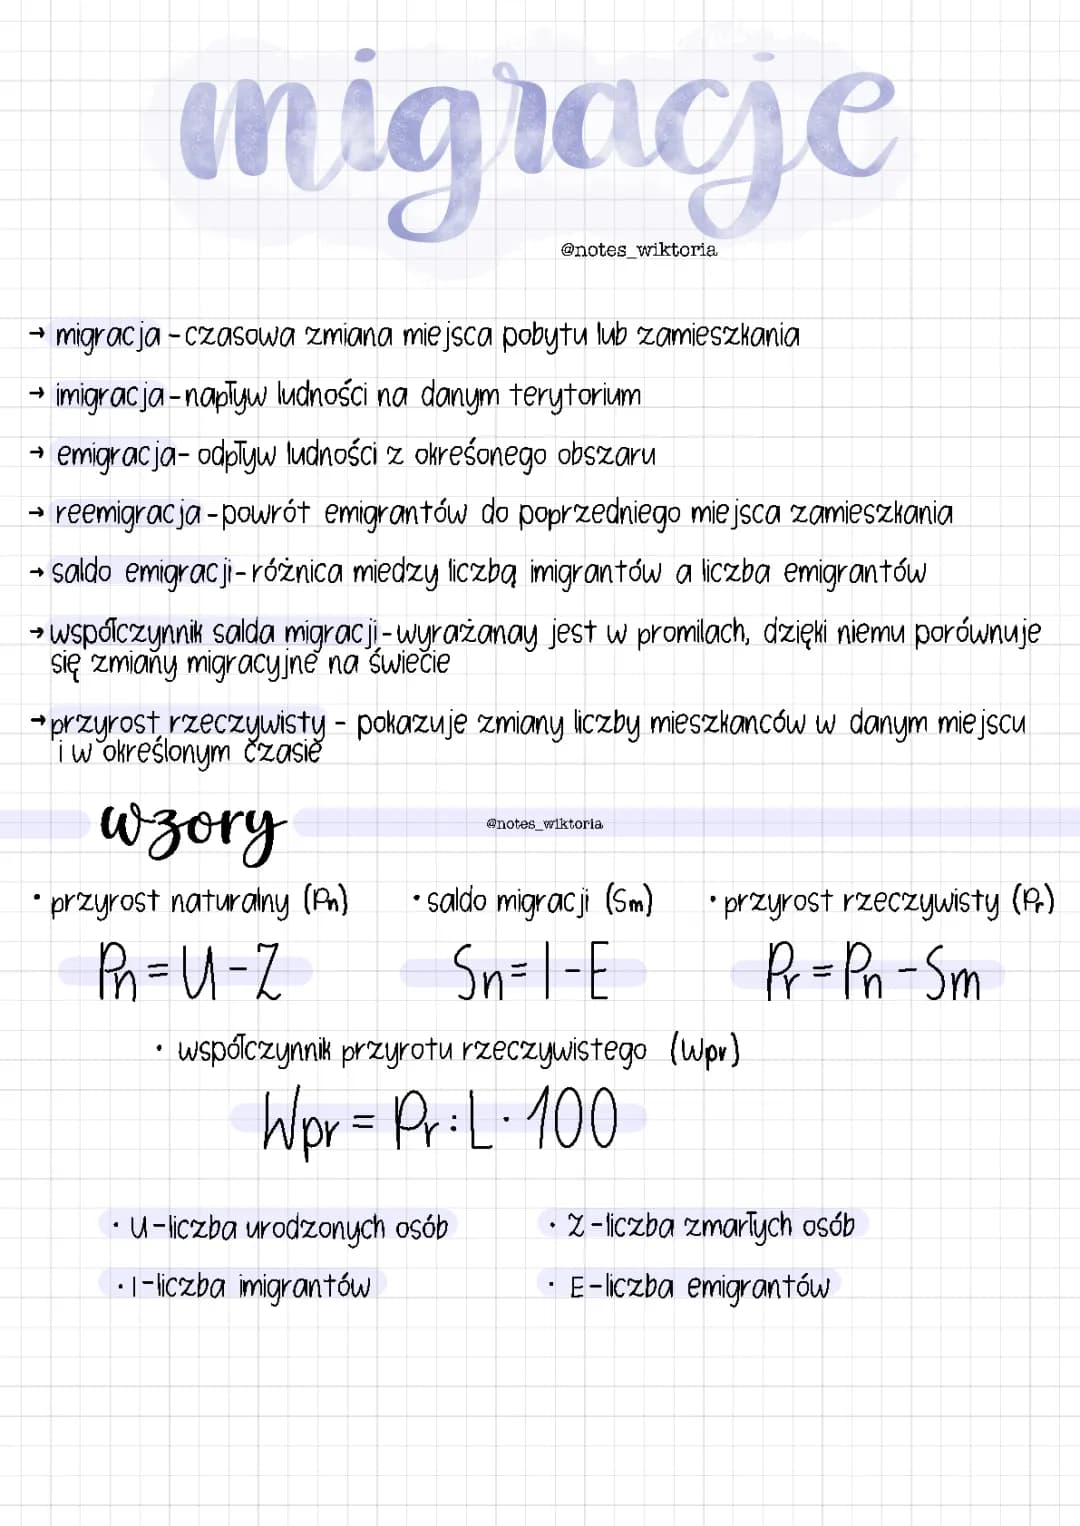 migracje
@notes_wiktoria
→ migracja - czasowa zmiana miejsca pobytu lub zamieszkania
→ imigracja - napływ ludności na danym terytorium
→ emigracja - odpływ ludności z okreśonego obszaru
→ reemigracja - powrót emigrantów do poprzedniego miejsca zamieszkania
→ saldo emigracji - różnica miedzy liczbą imigrantów a liczba emigrantów
→ współczynnik salda migracji - wyrażanay jest w promilach, dzięki niemu porównuje
się zmiany migracyjne na świecie
→ przyrost rzeczywisty - pokazuje zmiany liczby mieszkanców w danym miejscu
i w określonym czasie
wzory
@notes_wiktoria
• przyrost naturalny (Pn) • saldo migracji (Sm) • przyrost rzeczywisty (Pr)
Pn = U - Z Sn = I - E Pr = Pn - Sm
• współczynnik przyrotu rzeczywistego (Wpr)
Wpr = Pr : L · 100
• U - liczba urodzonych osób • Z - liczba zmarłych osób
• I - liczba imigrantów • E - liczba emigrantów